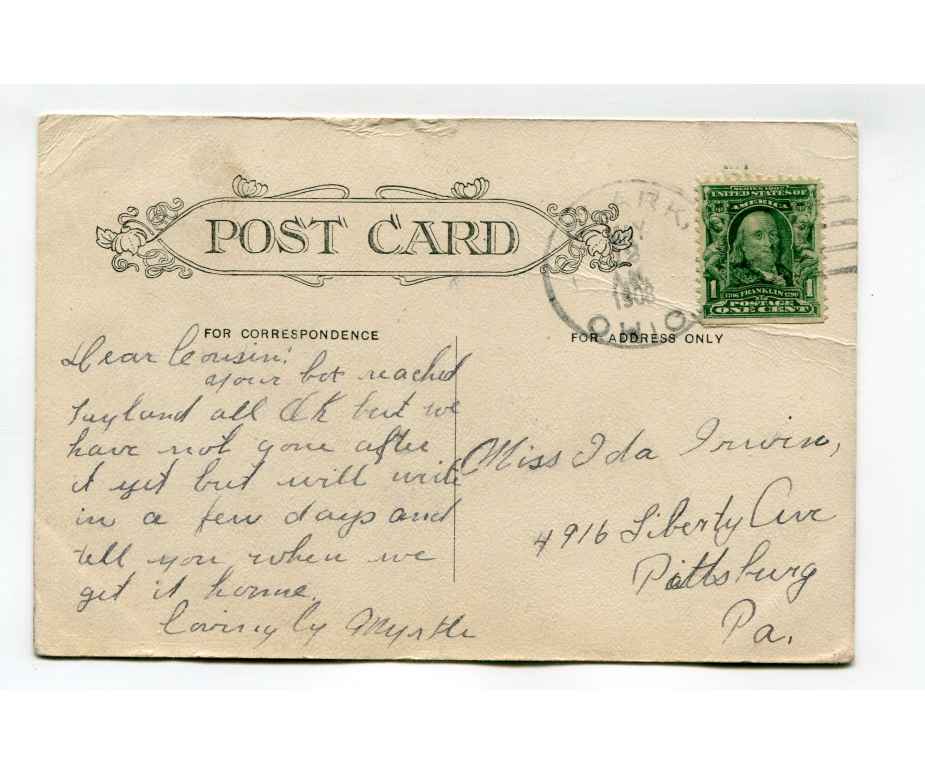 POST CARD
FOR CORRESPONDENCE
Dear Cousin!
Your box reached
all OK but we
have not gone after
it yet but will write
in a few days and
tell you when we
get it home.
Lovingly Myrtle
1908
OHIO
SERIES 1902
UNITED STATES OF
AMERICA
1 1790 FRANKLIN 1790 1
POSTAGE
ONE CENT
FOR ADDRESS ONLY
Miss Ida Irwin,
4916 Liberty Ave
Pittsburg
Pa.